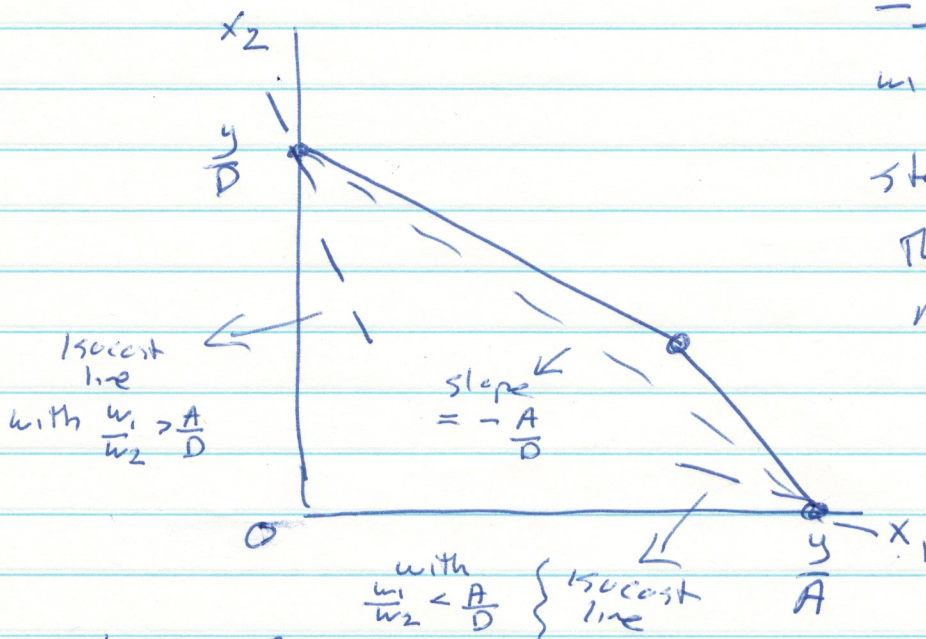 x2
w1
y/D
Isocost
line
with w1/w2 > A/D
slope
= - A/D
O
x1
y/A
with
w1/w2 < A/D } Isocost
line